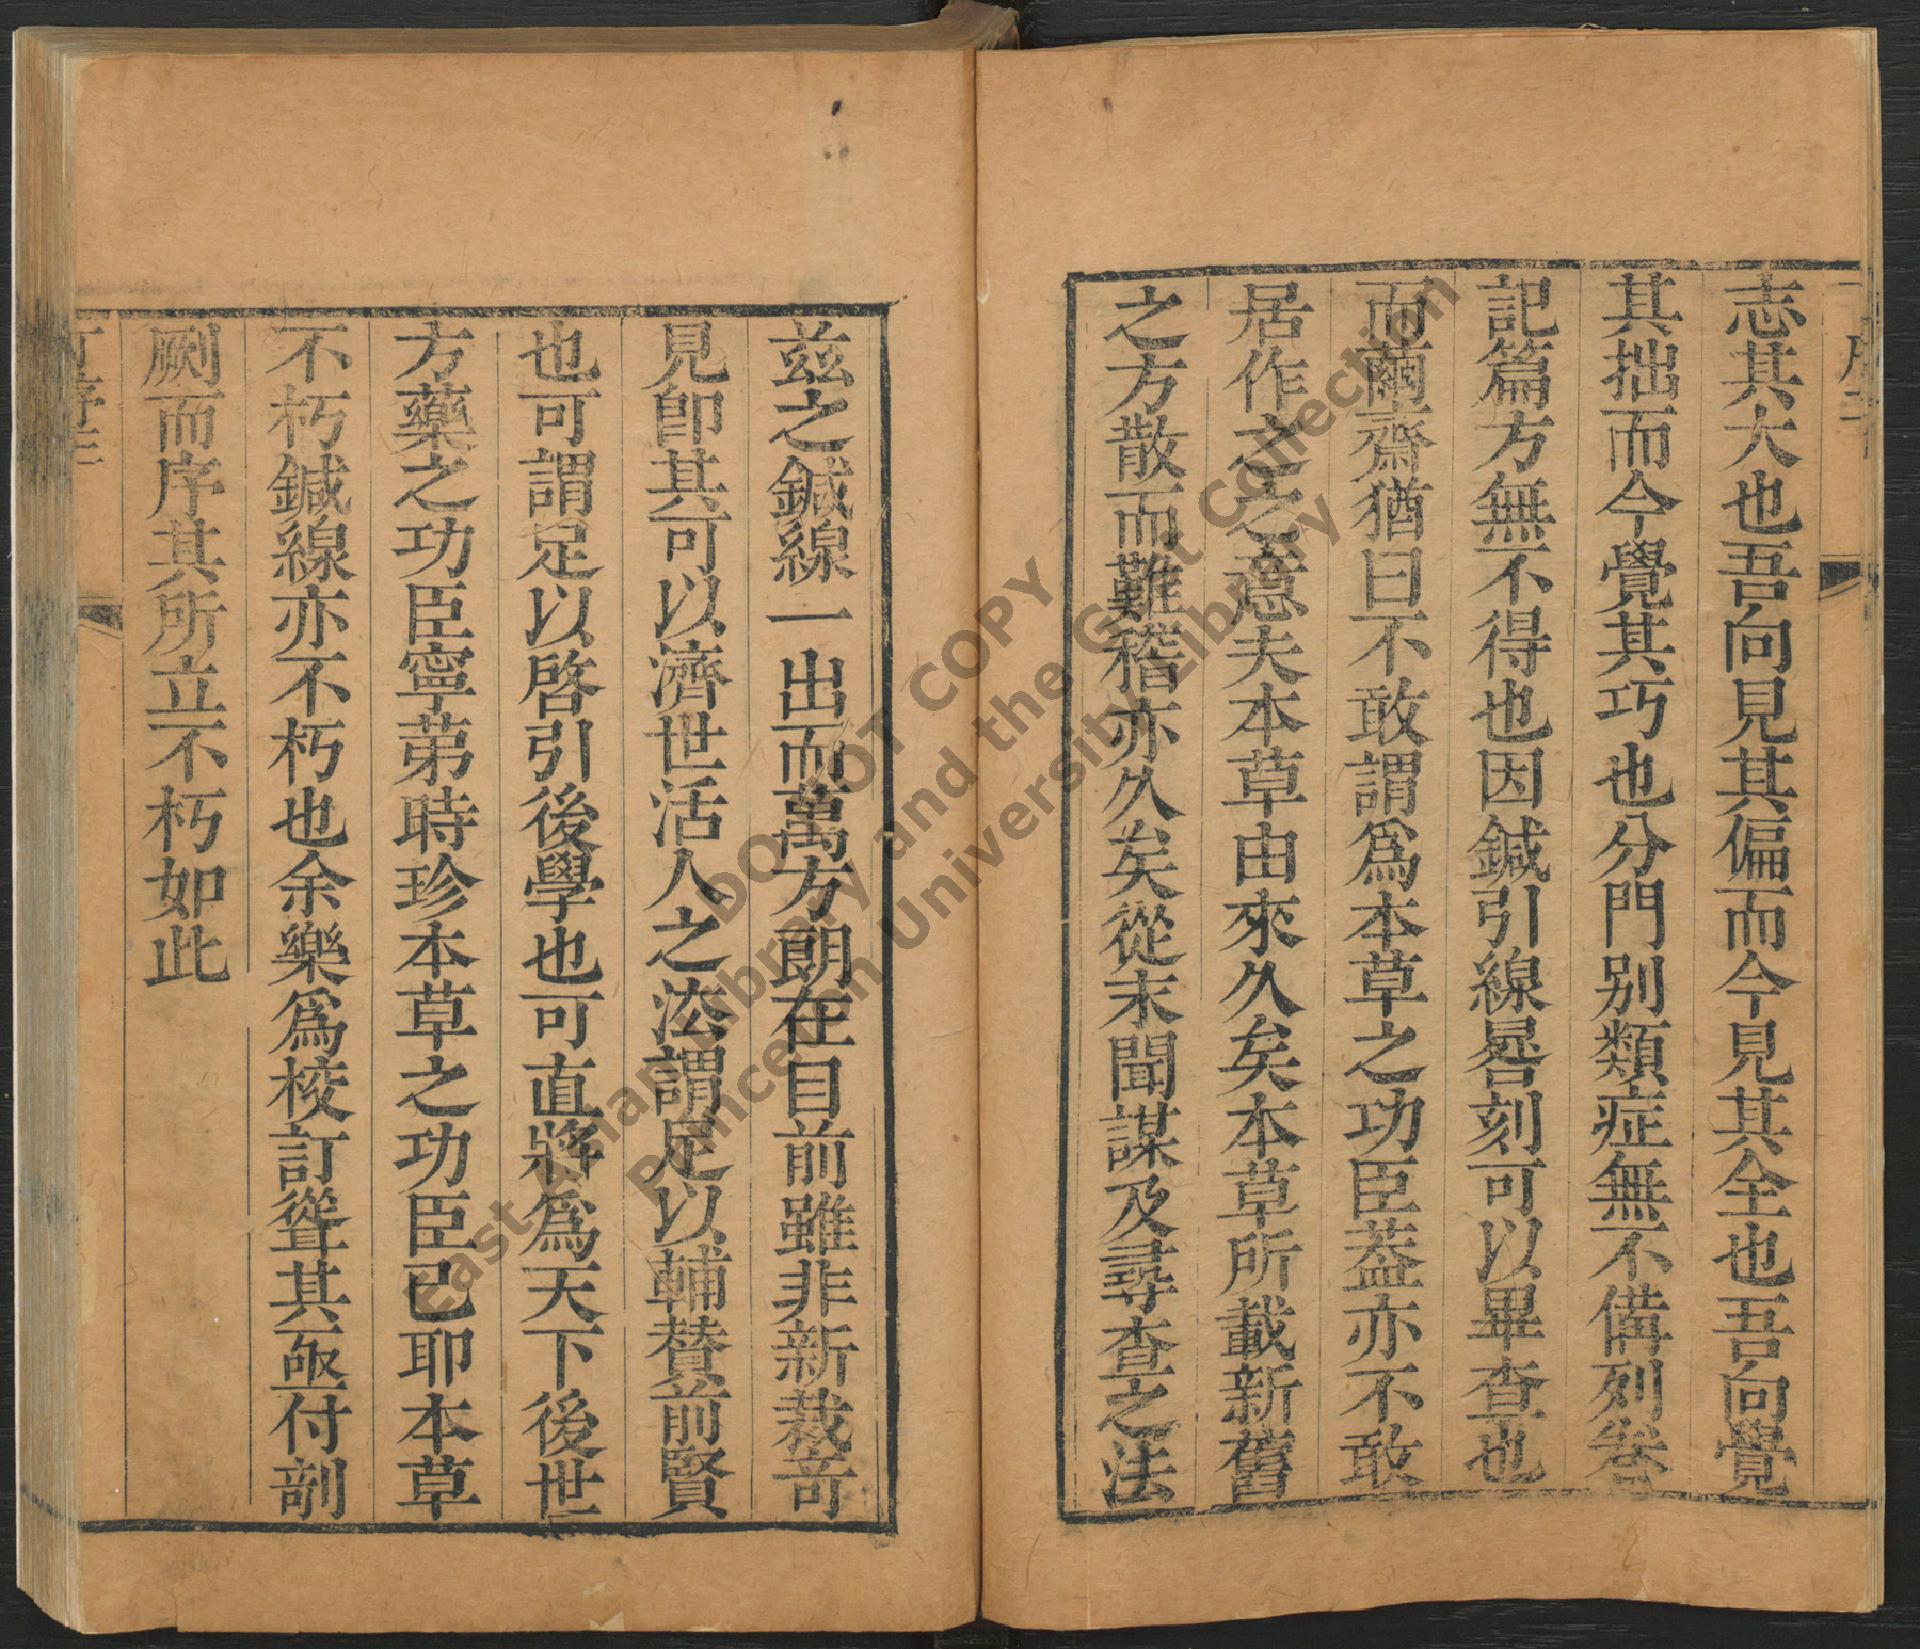 志其大也吾向見其偏而今見其全也吾向覺
其拙而今覺其巧也分門别類症無不備列卷
記篇方無不得也因鍼引線晷刻可以畢查也
而繭齋猶曰不敢謂爲本草之功臣葢亦不敢
居作之之意夫本草由來久矣本草所載新舊
之方散而難稽亦久矣從末聞謀及尋查之法
兹之鍼線一出而萬方朗在目前雖非新裁竒
見卽其可以濟世活人之法謂足以輔賛前賢
也可謂足以啓引後學也可直將爲天下後世
方藥之功臣寧苐時珍本草之功臣已耶本草
不朽鍼線亦不朽也余樂爲校訂聳其亟付剞
劂而序其所立不朽如此
DO NOT COPY
East Asian Library and the Gest Collection
Princeton University Library